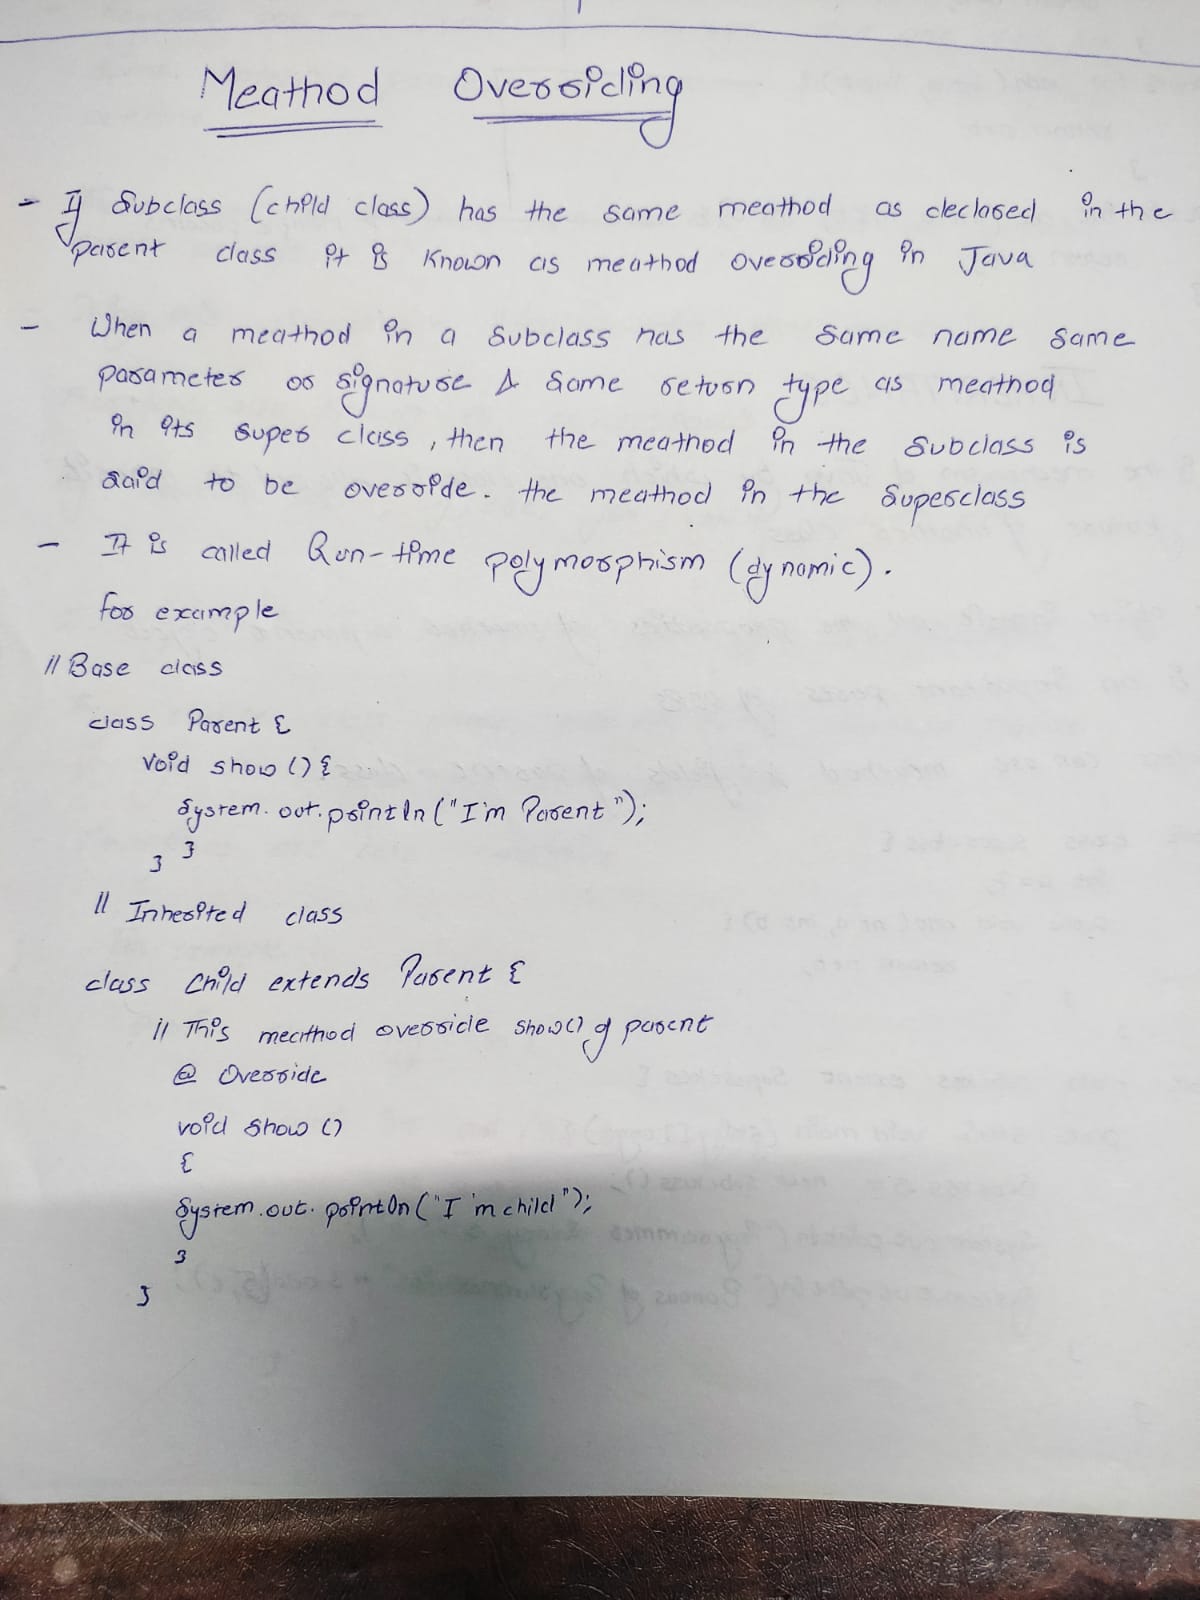 Meathod Overriding
- If Subclass (child class) has the same meathod as declared in the
parent class it is known as meathod overriding in Java
- When a meathod in a Subclass has the same name same
parameter or signature & same return type as meathod
in its super class, then the meathod in the subclass is
said to be override. the meathod in the superclass
- It is called Run-time polymorphism (dynamic).
for example
// Base class
class Parent {
void show () {
System.out.println ("I'm Parent");
}
}
// Inherited class
class Child extends Parent {
// This meathod override show() of parent
@ Override
void show ()
{
System.out.println ("I'm child");
}
}